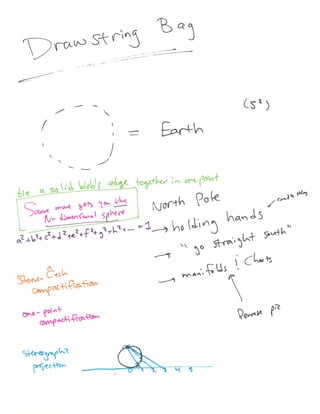 Drawstring Bag
(S²)
= Earth
tie a solid blob's edge together in one point
Same move gets you the
N-dimensional sphere
a²+b²+c²+d²+e²+f²+g²+h²+... = 1
North Pole
→ holding hands
→ "go straight south"
→ manifolds & Charts
Penrose pic
Stone-Čech
compactification
one-point
compactification
stereographic
projection
0 1 2 3 4 5